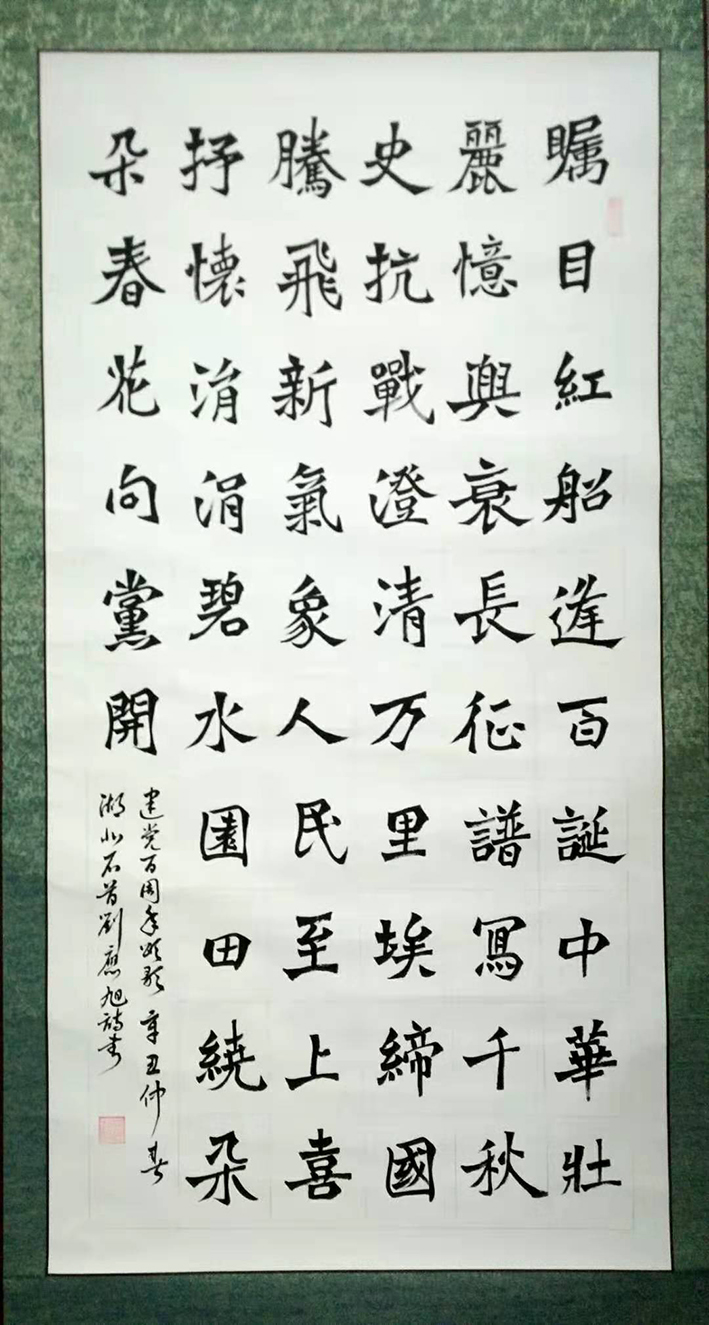 矚目紅船逢百誕中華壯
麗憶興衰長征譜寫千秋
史抗戰澄清万里埃締國
騰飛新氣象人民至上喜
抒懷涓涓碧水園田繞朵
朵春花向黨開
建党百周年頌歌 辛丑仲春
湖北石首劉應旭詩書